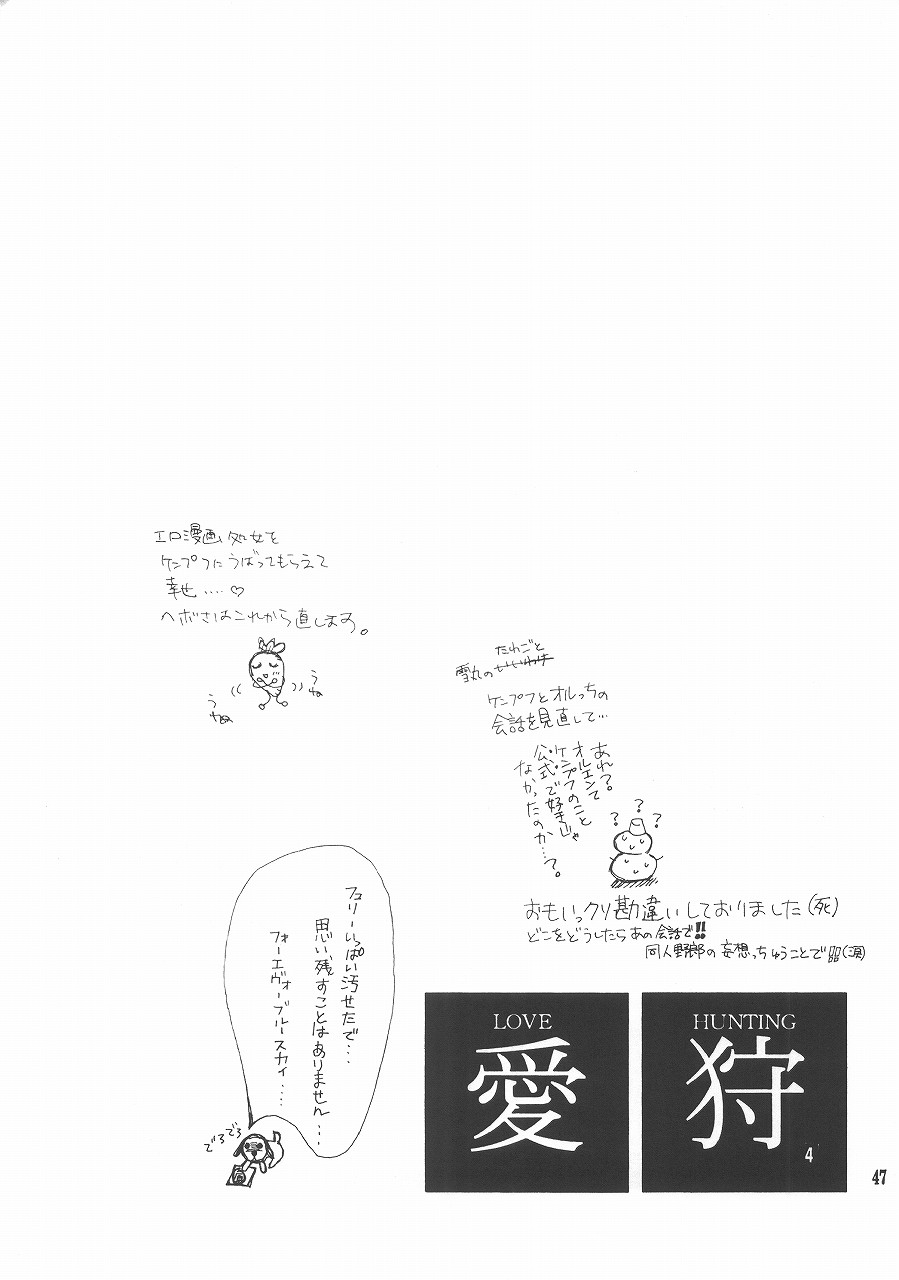 エロ漫画処女を
ケンプフにうばってもらえて
幸せ....♡
ヘボさはこれから直します。
うね
うねぬ
たわごと
雪丸のいいわけ
ケンプフとオルっちの
会話を見直して…
あれ?
オルエンて
ケンプフのこと
公式で好きじゃ
なかったのか…?。
? ? ?
おもいっクソ勘違いしておりました(死)
どこをどうしたらあの会話で!!
同人野郎の妄想っちゅうことで(涙)
フュリーいっぱい汚せたで...
思い残すことはありません...
フォーエヴァーブルースカイ....
でろでろ
LOVE
愛
HUNTING
狩
4
47